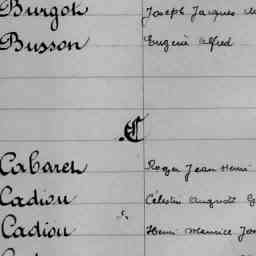 Burgot Joseph Jacques
Busson Eugène Alfred
C
Cabaret Roger Jean Henri
Cadiou Célestin Auguste
Cadiou Henri Maurice